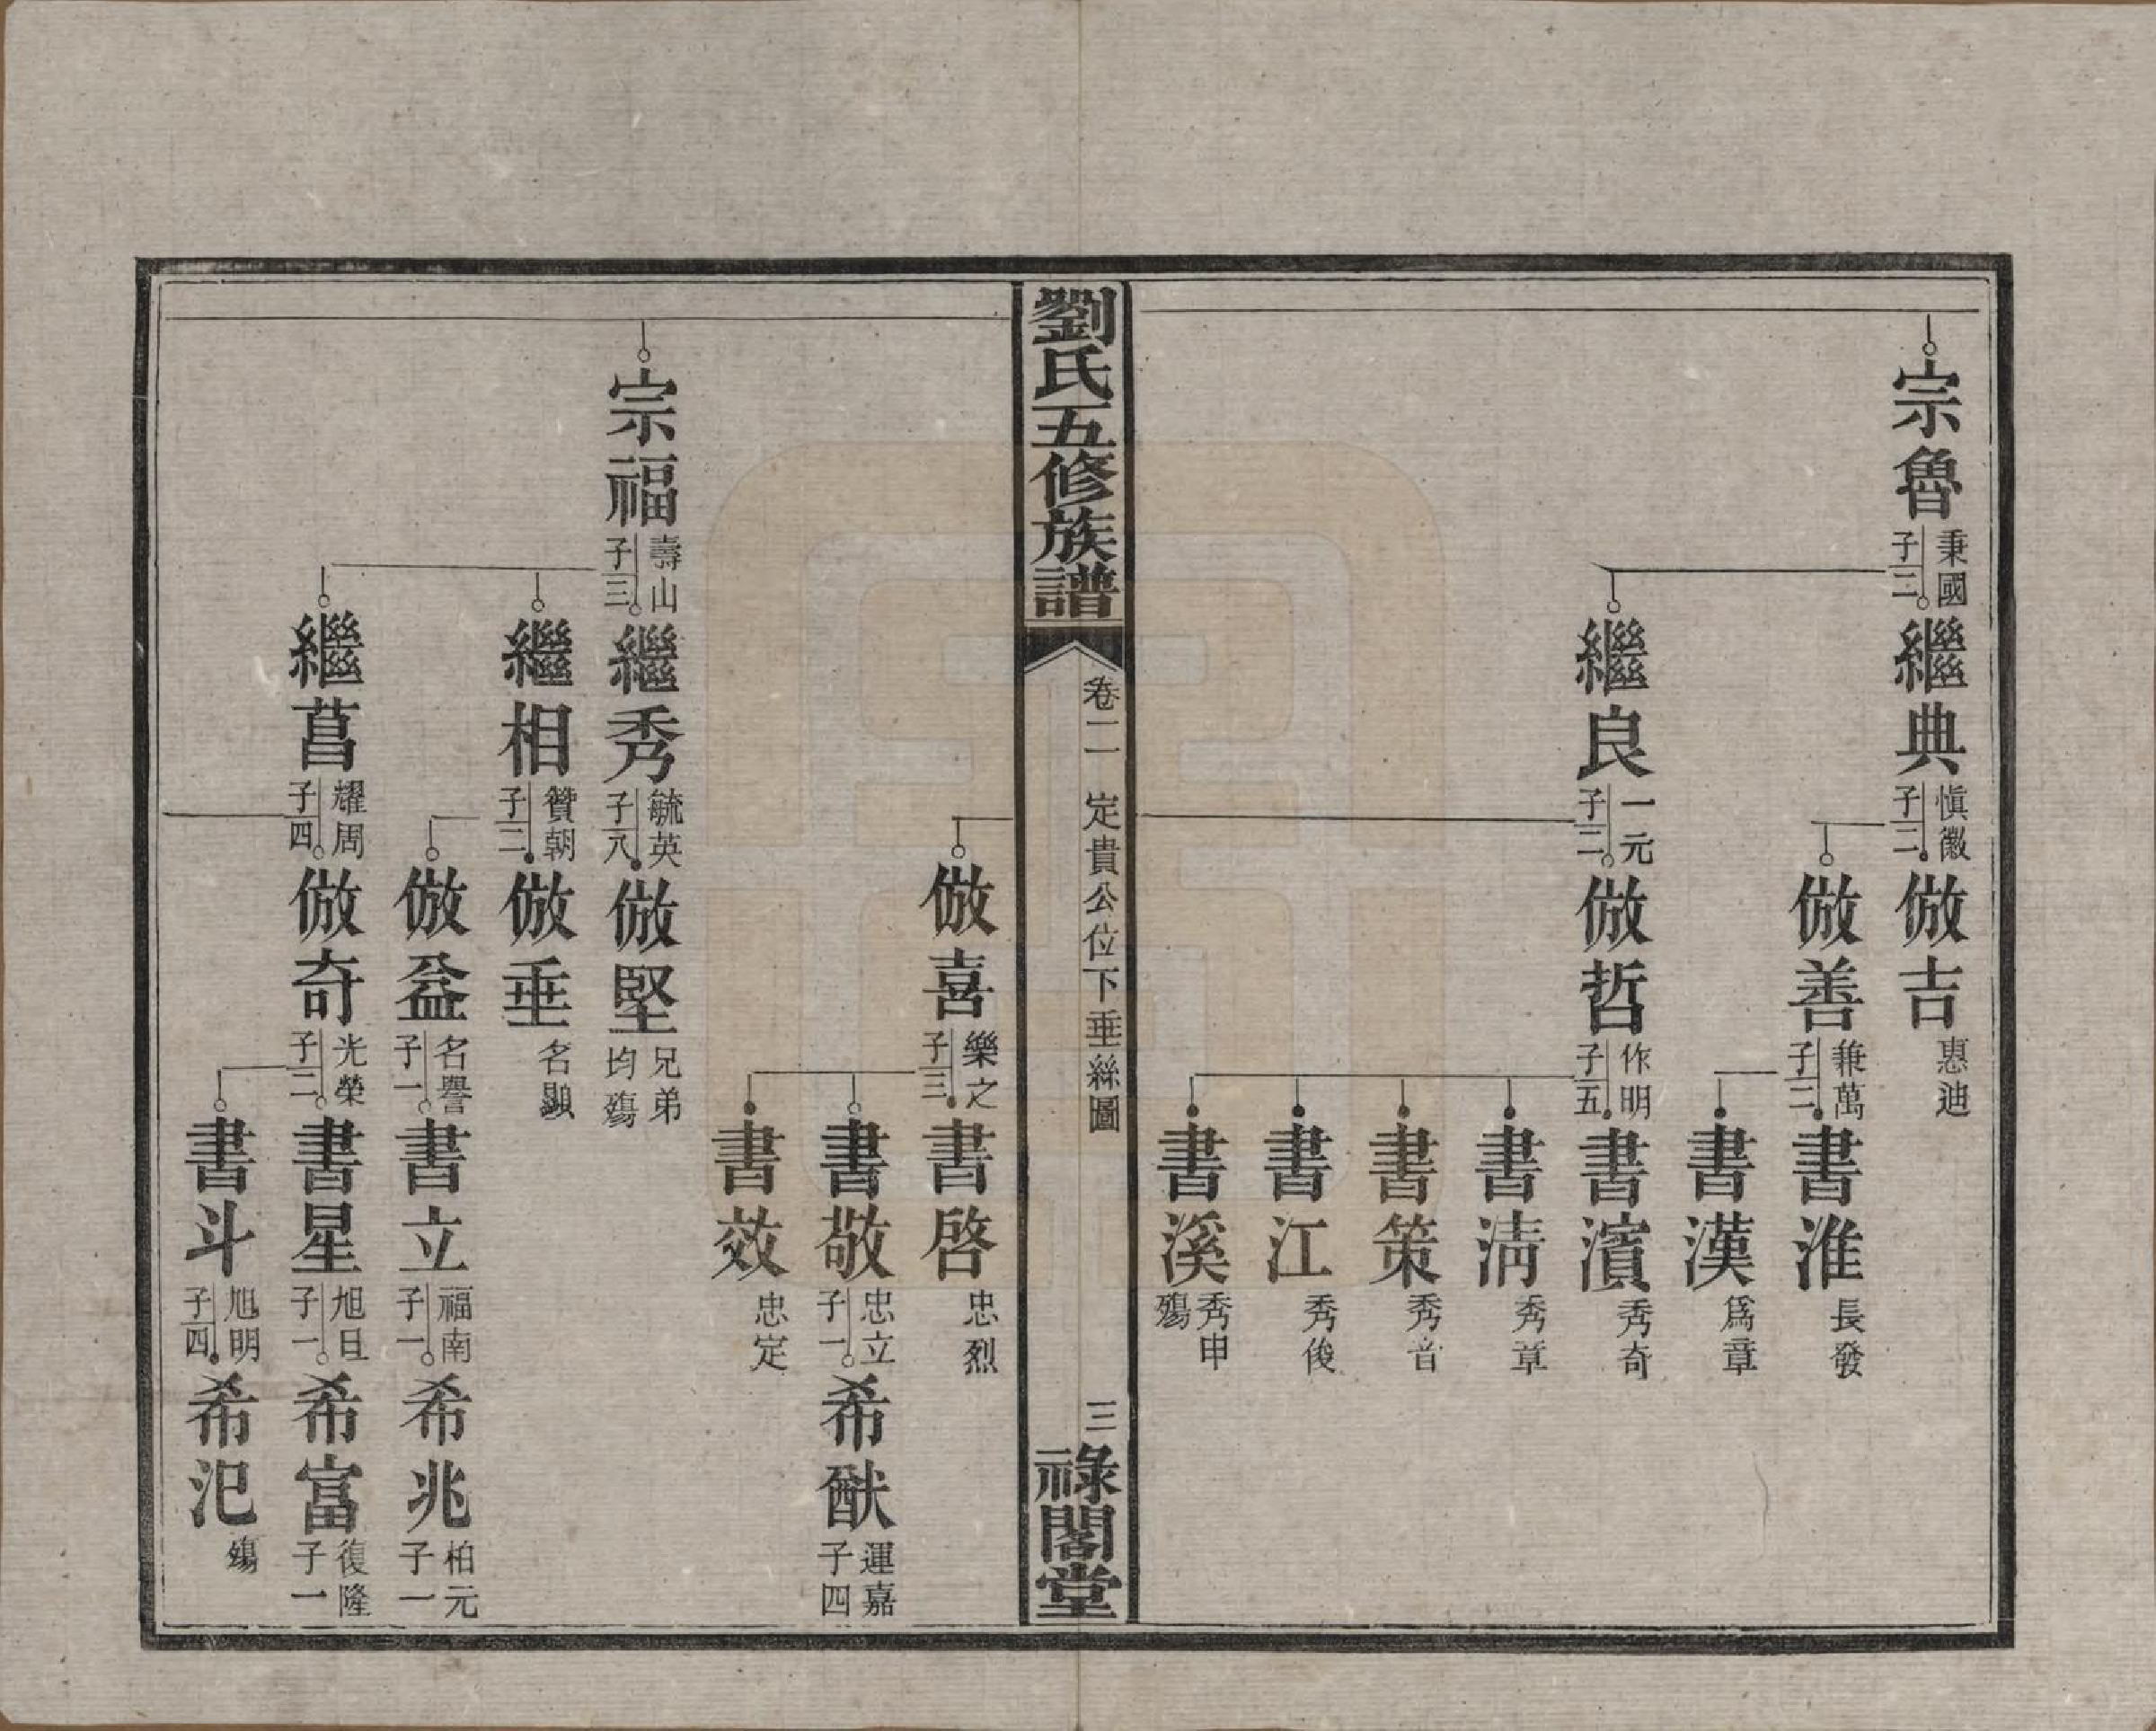 宗魯 秉國 子二 繼典 愼徽 子二 倣吉 惠迪
倣善 兼萬 子二 書淮 長發
書漢 爲章
繼良 一元 子二 倣哲 作明 子五 書濱 秀奇
書清 秀章
書策 秀音
書江 秀俊
書溪 秀申 殤
劉氏五修族譜 卷二 定貴公位下垂絲圖 三 祿閣堂
倣喜 樂之 子三 書啓 忠烈
書敬 忠立 子一 希猷 運嘉 子四
書效 忠定
宗福 壽山 子三 繼秀 毓英 子八 倣堅 兄弟均殤
繼相 贊朝 子二 倣垂 名顯
倣益 名譽 子一 書立 福南 子一 希兆 柏元 子一
繼菖 耀周 子四 倣奇 光榮 子二 書星 旭旦 子一 希富 復隆 子一
書斗 旭明 子四 希汜 殤